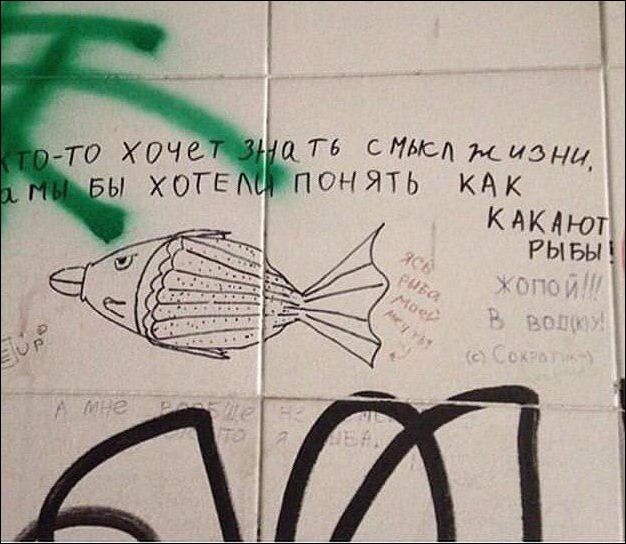 кто-то хочет знать смысл жизни,
а мы бы хотели понять как
какают
рыбы!
Жопой!!!
В вод(к)у!
(с) Сократ(:-)
ЯСЬ
рыба
моей
мечты
:)
ЕUP
А мне вообще не
что я рыба.